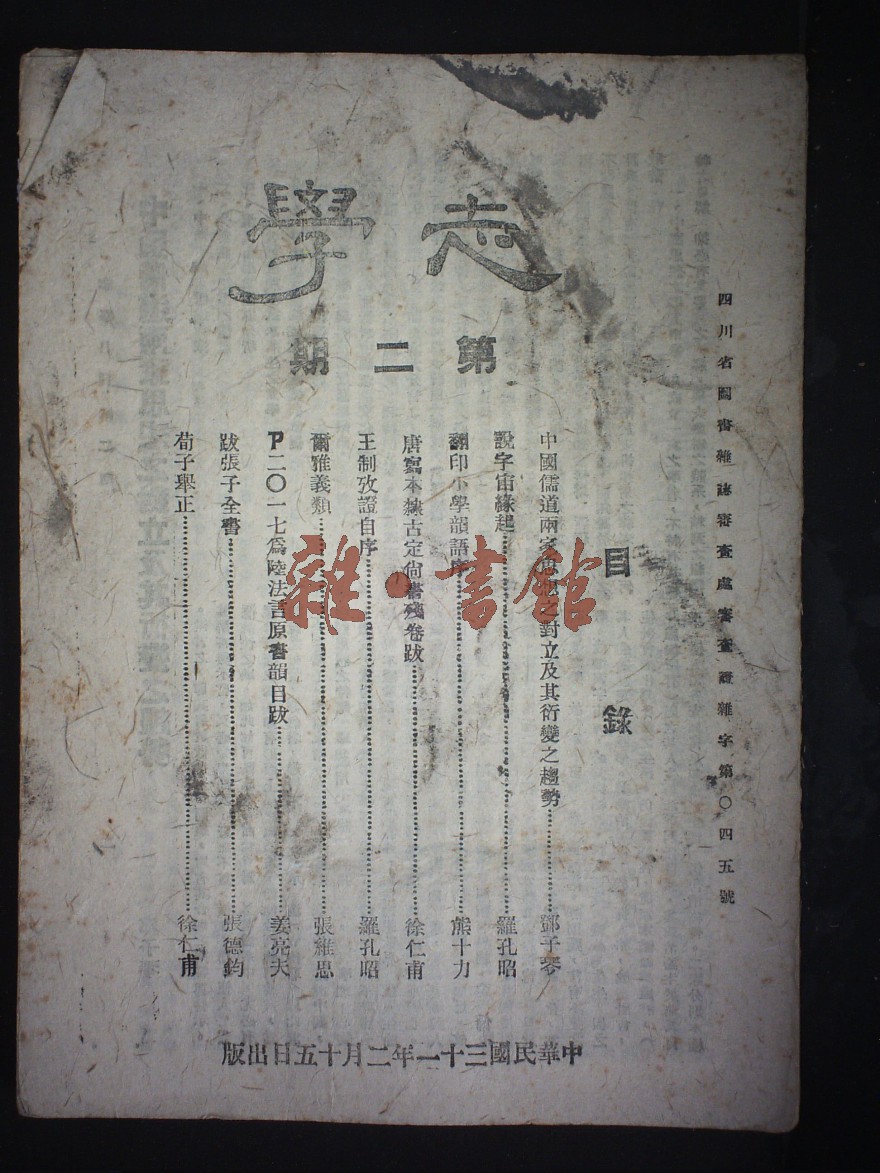 四川省圖書雜誌審查處審查證雜字第〇四五號
志學
第二期
目錄
中國儒道兩家思想之對立及其衍變之趨勢……鄧子琴
說字宙緣起……羅孔昭
翻印小學韻語序……熊十力
唐寫本隸古定尙書殘卷跋……徐仁甫
王制攷證自序……羅孔昭
爾雅義類……張維思
P二〇一七爲陸法言原書韻目跋……姜亮夫
跋張子全書……張德鈞
荀子舉正……徐仁甫
中華民國三十一年二月十五日出版
雜·書館